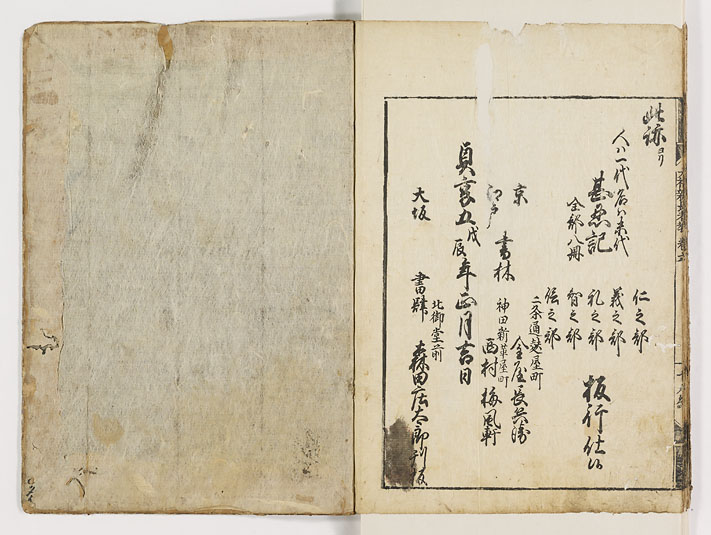 此跡ゟ
人ハ一代名ハ末代
甚忍記
全部八冊
仁之部
義之部
礼之部
智之部
信之部
板行仕候
二条通越屋町
京
金屋長兵衛
江戸
書林
神田新革屋町
西村梅風軒
貞享五戊辰年正月吉日
大坂
書肆
北御堂前
森田庄太郎刊板